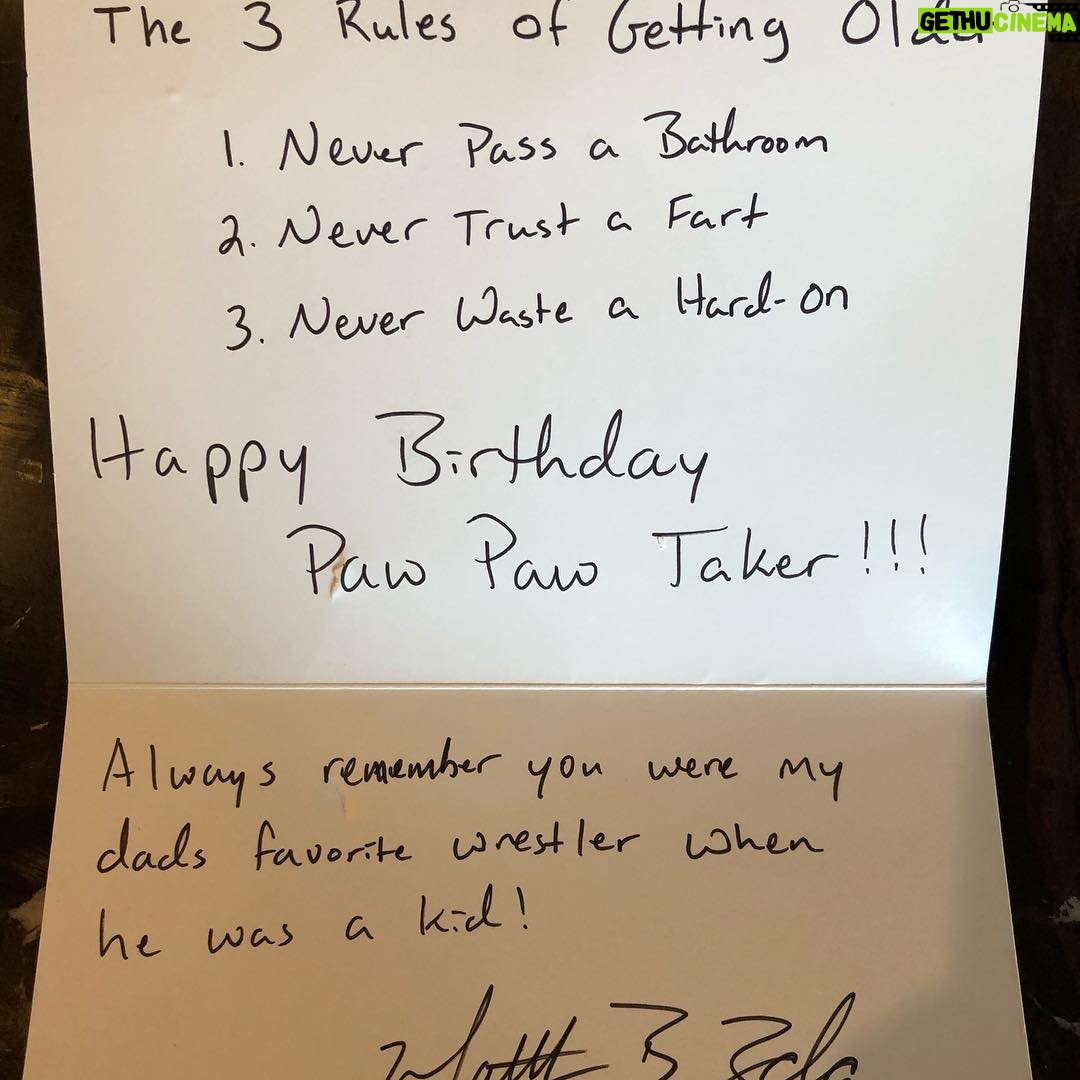 The 3 Rules of Getting
GETHU CINEMA
1. Never Pass a Bathroom
2. Never Trust a Fart
3. Never Waste a Hard-on
Happy Birthday
Paw Paw Taker!!!
Always remember you were my
dads favorite wrestler when
he was a kid!